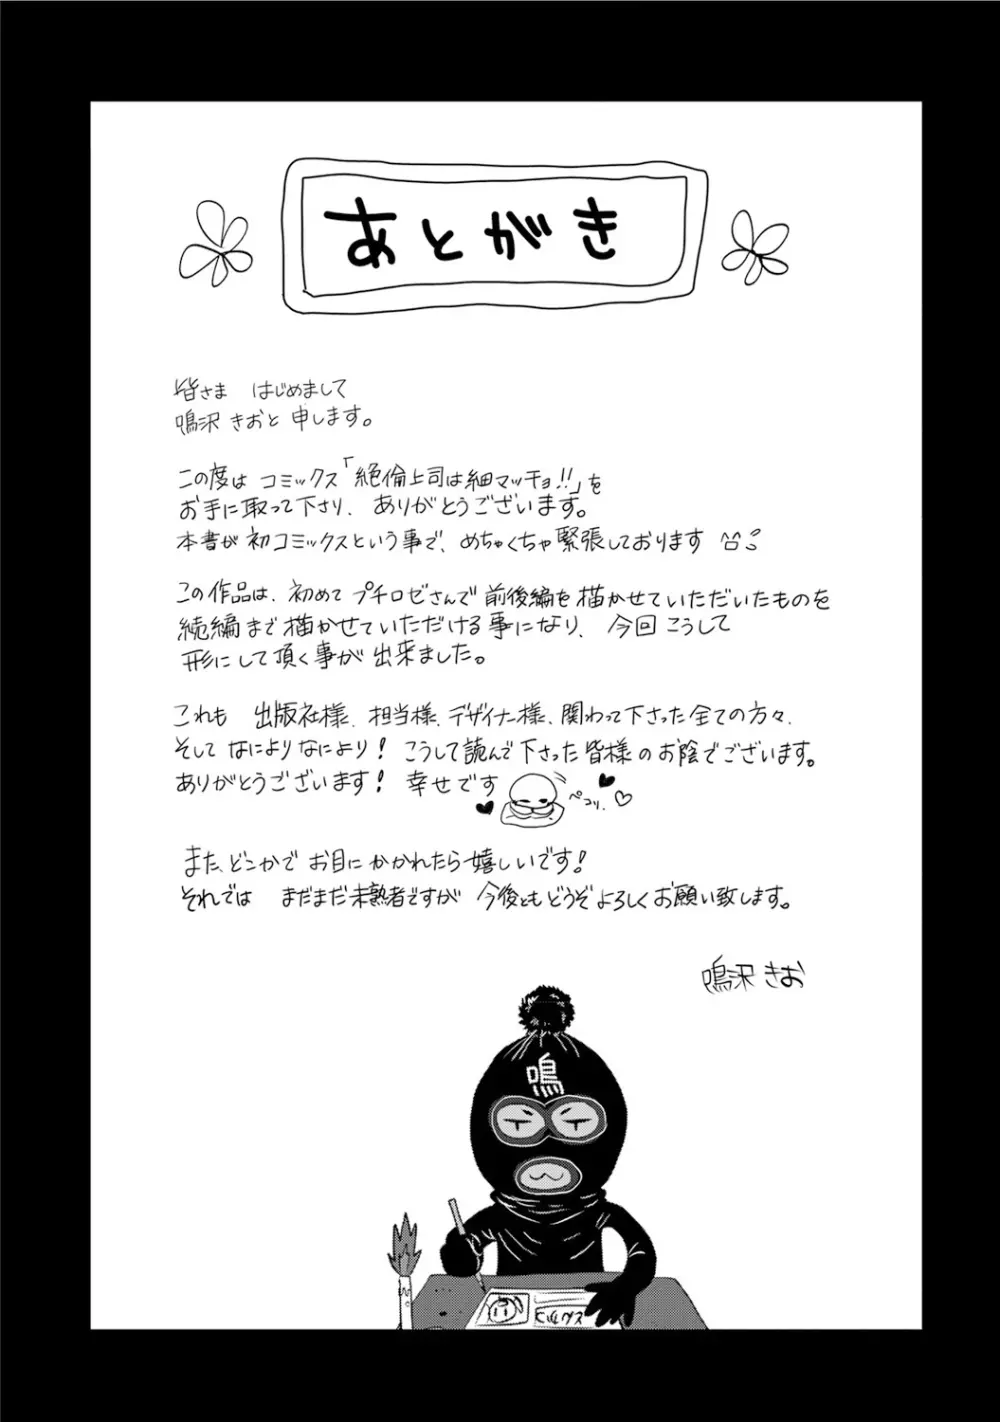 あとがき
皆さま はじめまして
鳴沢 きおと 申します。
この度は コミックス「絶倫上司は細マッチョ!!」を
お手に取って下さり、ありがとうございます。
本書が 初コミックスという事で、めちゃくちゃ緊張しております
この作品は、初めて プチロゼさんで 前後編を 描かせていただいたものを
続編まで 描かせていただける事になり、今回 こうして
形にして頂く事が 出来ました。
これも 出版社様、担当様、デザイナー様、関わって下さった 全ての方々、
そして なにより なにより! こうして読んで下さった 皆様のお陰でございます。
ありがとうございます! 幸せです
ペコリ、♡
また、どこかで お目にかかれたら 嬉しいです!
それでは まだまだ未熟者ですが 今後とも どうぞ よろしくお願い致します。
鳴沢 きお
鳴